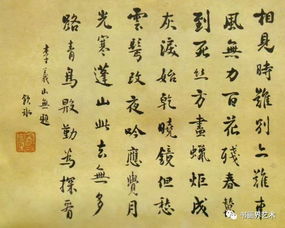 相見時難別亦難東
風無力百花殘春蠶
到死絲方盡蠟炬成
灰淚始乾曉鏡但愁
雲鬢改夜吟應覺月
光寒蓬山此去無多
路青鳥殷勤為探看
李義山無題
書画界艺术